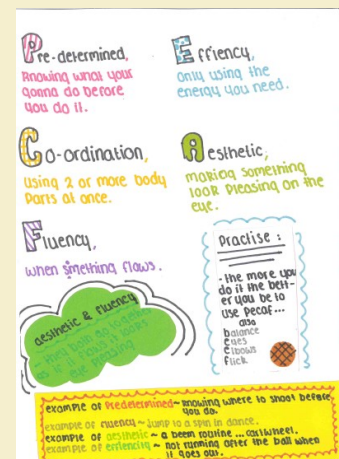 Pre-determined,
Knowing what your
gonna do before
you do it.
Effiency,
only using the
energy you need.
Co-ordination,
using 2 or more body
parts at once.
Aesthetic,
making something
look pleasing on the
eye.
Fluency,
when something flows.
Practise :
- the more you
do it the bett-
er you be to
use pecaf...
also
balance
eyes
elbows
flick
aesthetic & fluency
~ they both go together
as if it flows it looks
eye pleasing
example of Predetermined ~ knowing where to shoot before
you do.
example of fluency ~ Jump to a spin in dance.
example of aesthetic ~ a beem routine ... cartwheel.
example of effiencity ~ not running after the ball when
it goes out.